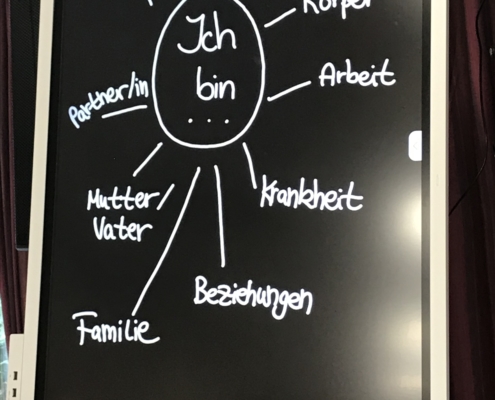 Körper
Ich
bin
...
Arbeit
Partner/in
Mutter/
Vater
Krankheit
Beziehungen
Familie